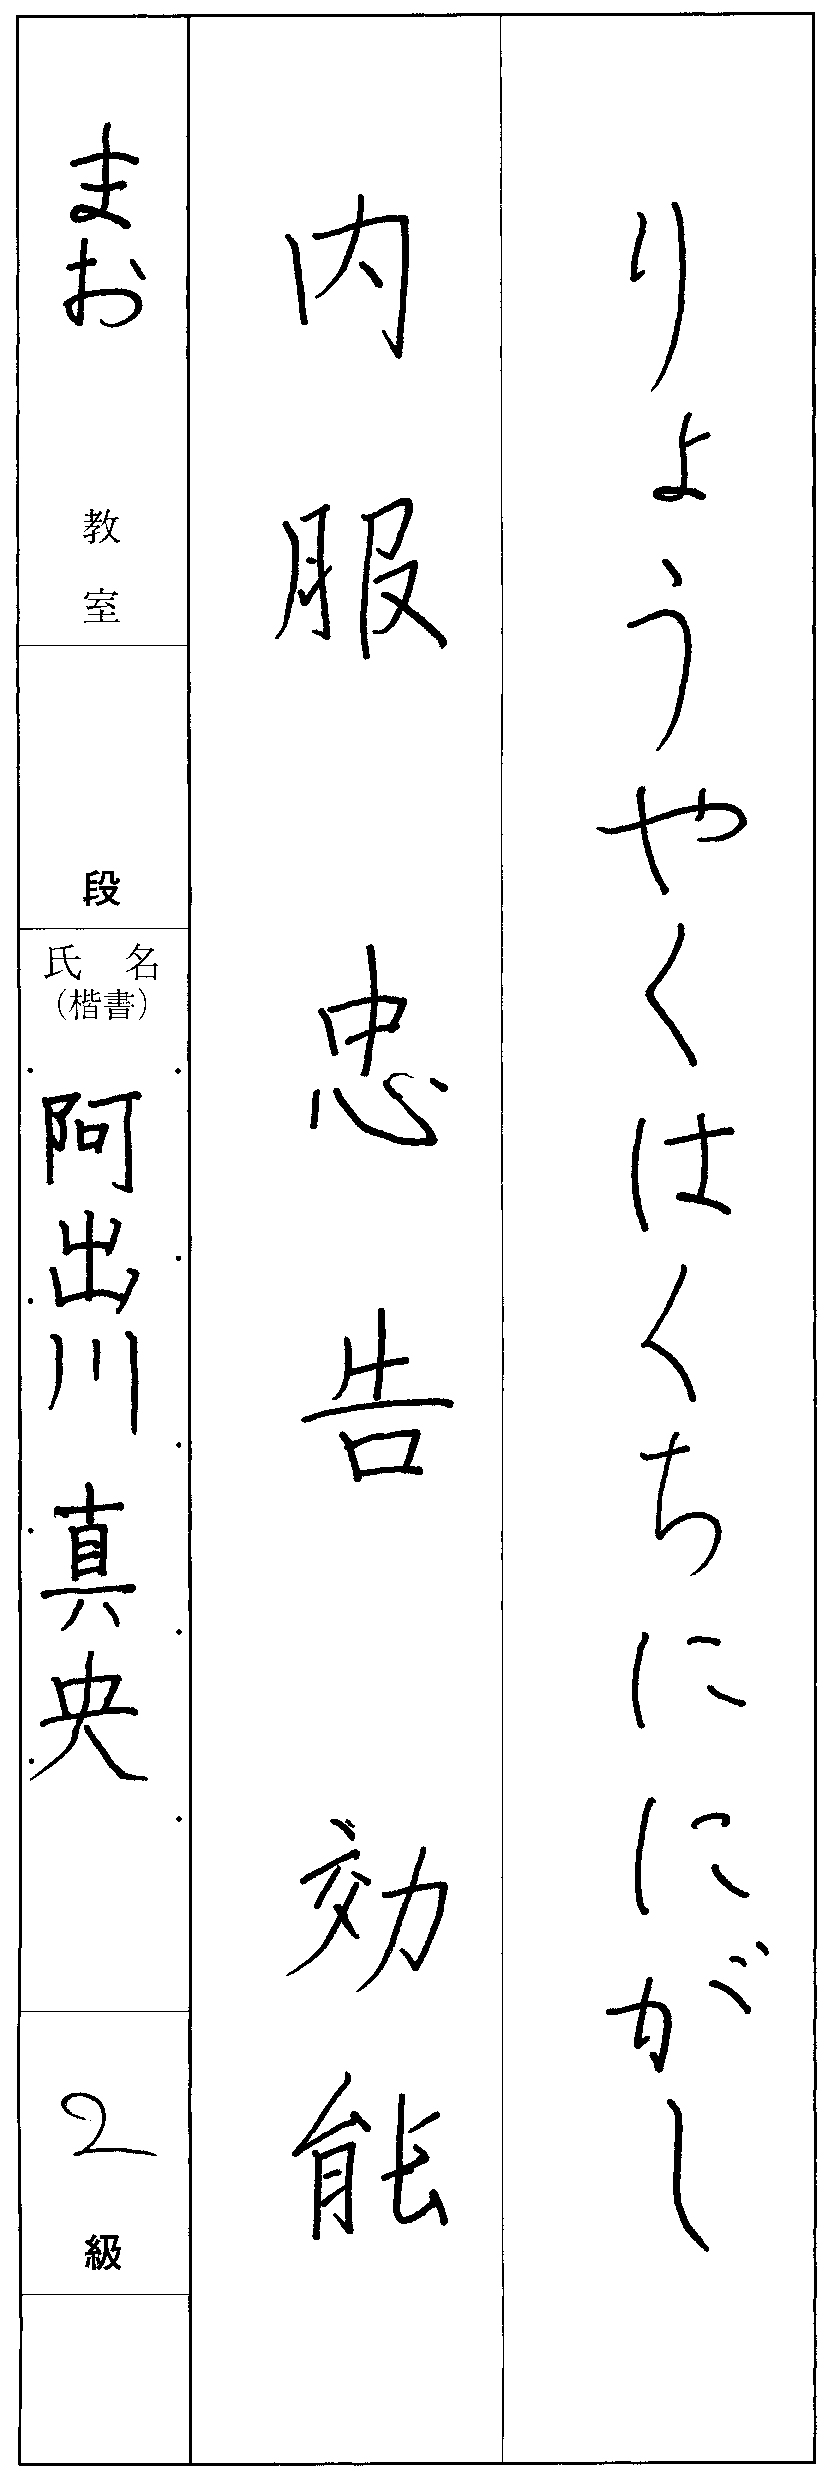 りょうやくはくちににがし
内服 忠告 効能
まお教室
段
氏名
(楷書)
阿出川 真央
2級